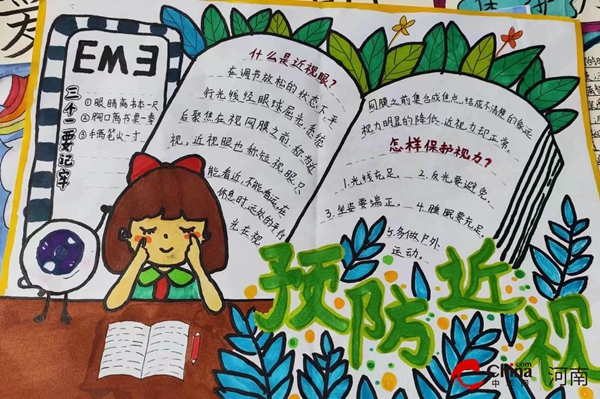 EMƎ
三个一要记牢
①眼睛离书本一尺
②胸口离书桌一拳
③手离笔尖一寸
什么是近视眼?
在调节放松的状态下,平
行光线经眼球屈光系统
后聚焦在视网膜之前,称为近
视。近视眼也称短视眼,只
能看近,不能看远,在
休息时,远处的平行
光在视
网膜之前集合成焦点,结成不清楚的象远
视力明显的降低,近视力却正常。
怎样保护视力?
1.光线充足。
2.反光要避免。
3.坐姿要端正。
4.睡眠要充足。
5.多做户外
运动。
预防近视
China
.com
中华网
河南